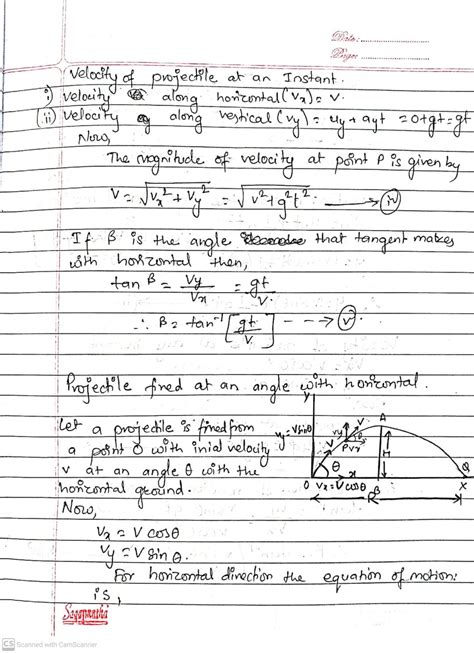 Date:
Page:
Velocity of projectile at an Instant.
i) Velocity along horizontal (Vx) = V.
(ii) Velocity along vertical (Vy) = uy + ayt = 0+gt = gt
Now,
The magnitude of velocity at point P is given by
V = √Vx² + Vy² = √V² + g²t² → (iv)
If β is the angle that tangent makes
with horizontal then,
tan β = Vy/Vx = gt/V.
∴ β = tan⁻¹ [gt/V] - - -→ (v)
Projectile fired at an angle with horizontal.
Let a projectile is fired from
a point O with inial velocity
v at an angle θ with the
horizontal ground.
Now,
Vx = V cosθ
Vy = V sin θ.
For horizontal direction the equation of motion:
is,
y
A
Vy = Vsinθ
Vy
V
θ
P
Vx
V
H
θ
x
Q
O
Vx = V cosθ
B
X
R
Sagarmatha
CS Scanned with CamScanner